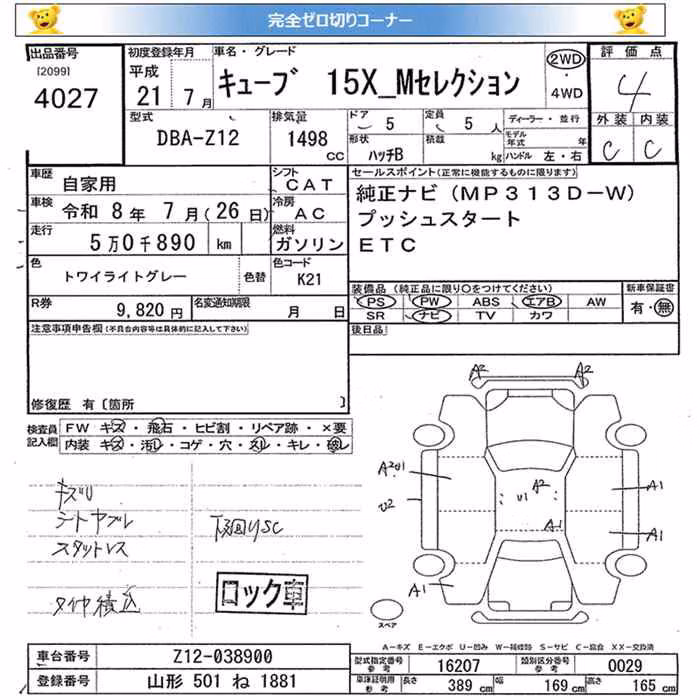 完全ゼロ切りコーナー
出品番号
[2099]
4027
初度登録年月
平成
21 7月
車名・グレード
キューブ 15X_Mセレクション
2WD
・
4WD
評価点
4
外装 内装
C C
型式
DBA-Z12
排気量
1498
CC
ドア 5
定員 5 人
形状
ハッチB
積載 kg
ディーラー・並行
モデル年式 年
ハンドル 左・右
車歴 自家用
シフト CAT
車検 令和 8年 7月(26日)
冷房 AC
走行 5万0千890 km
燃料 ガソリン
色 トワイライトグレー 色替
色コード K21
R券 9,820円
名変通知期限 月 日
セールスポイント(正常に機能するものに限ります)
純正ナビ(MP313D-W)
プッシュスタート
ETC
装備品 (純正品に限り○をつけてください)
PS PW ABS エアB AW
SR ナビ TV カワ
新車保証書
有・無
後日品
注意事項申告欄(不具合内容等は具体的に記入して下さい)
修復歴 有〔箇所 〕
検査員記入欄
FW キズ・飛石・ヒビ割・リペア跡・×要
内装 キズ・汚レ・コゲ・穴・スレ・キレ・破レ
キズU
シートヤブレ
スタットレス
タイヤ積込
下廻りSC
ロック車
A2 A2
A2U1
U2
U1 A2
A1
A1
A1
A1
スペア
A-キズ E-エクボ U-凹み W-補修跡 S-サビ C-腐食 XX-交換済
車台番号 Z12-038900
登録番号 山形 501 ね 1881
型式指定番号 参考 16207
類別区分番号 参考 0029
車庫証明用 参考
長さ 389 cm 幅 169 cm 高さ 165 cm